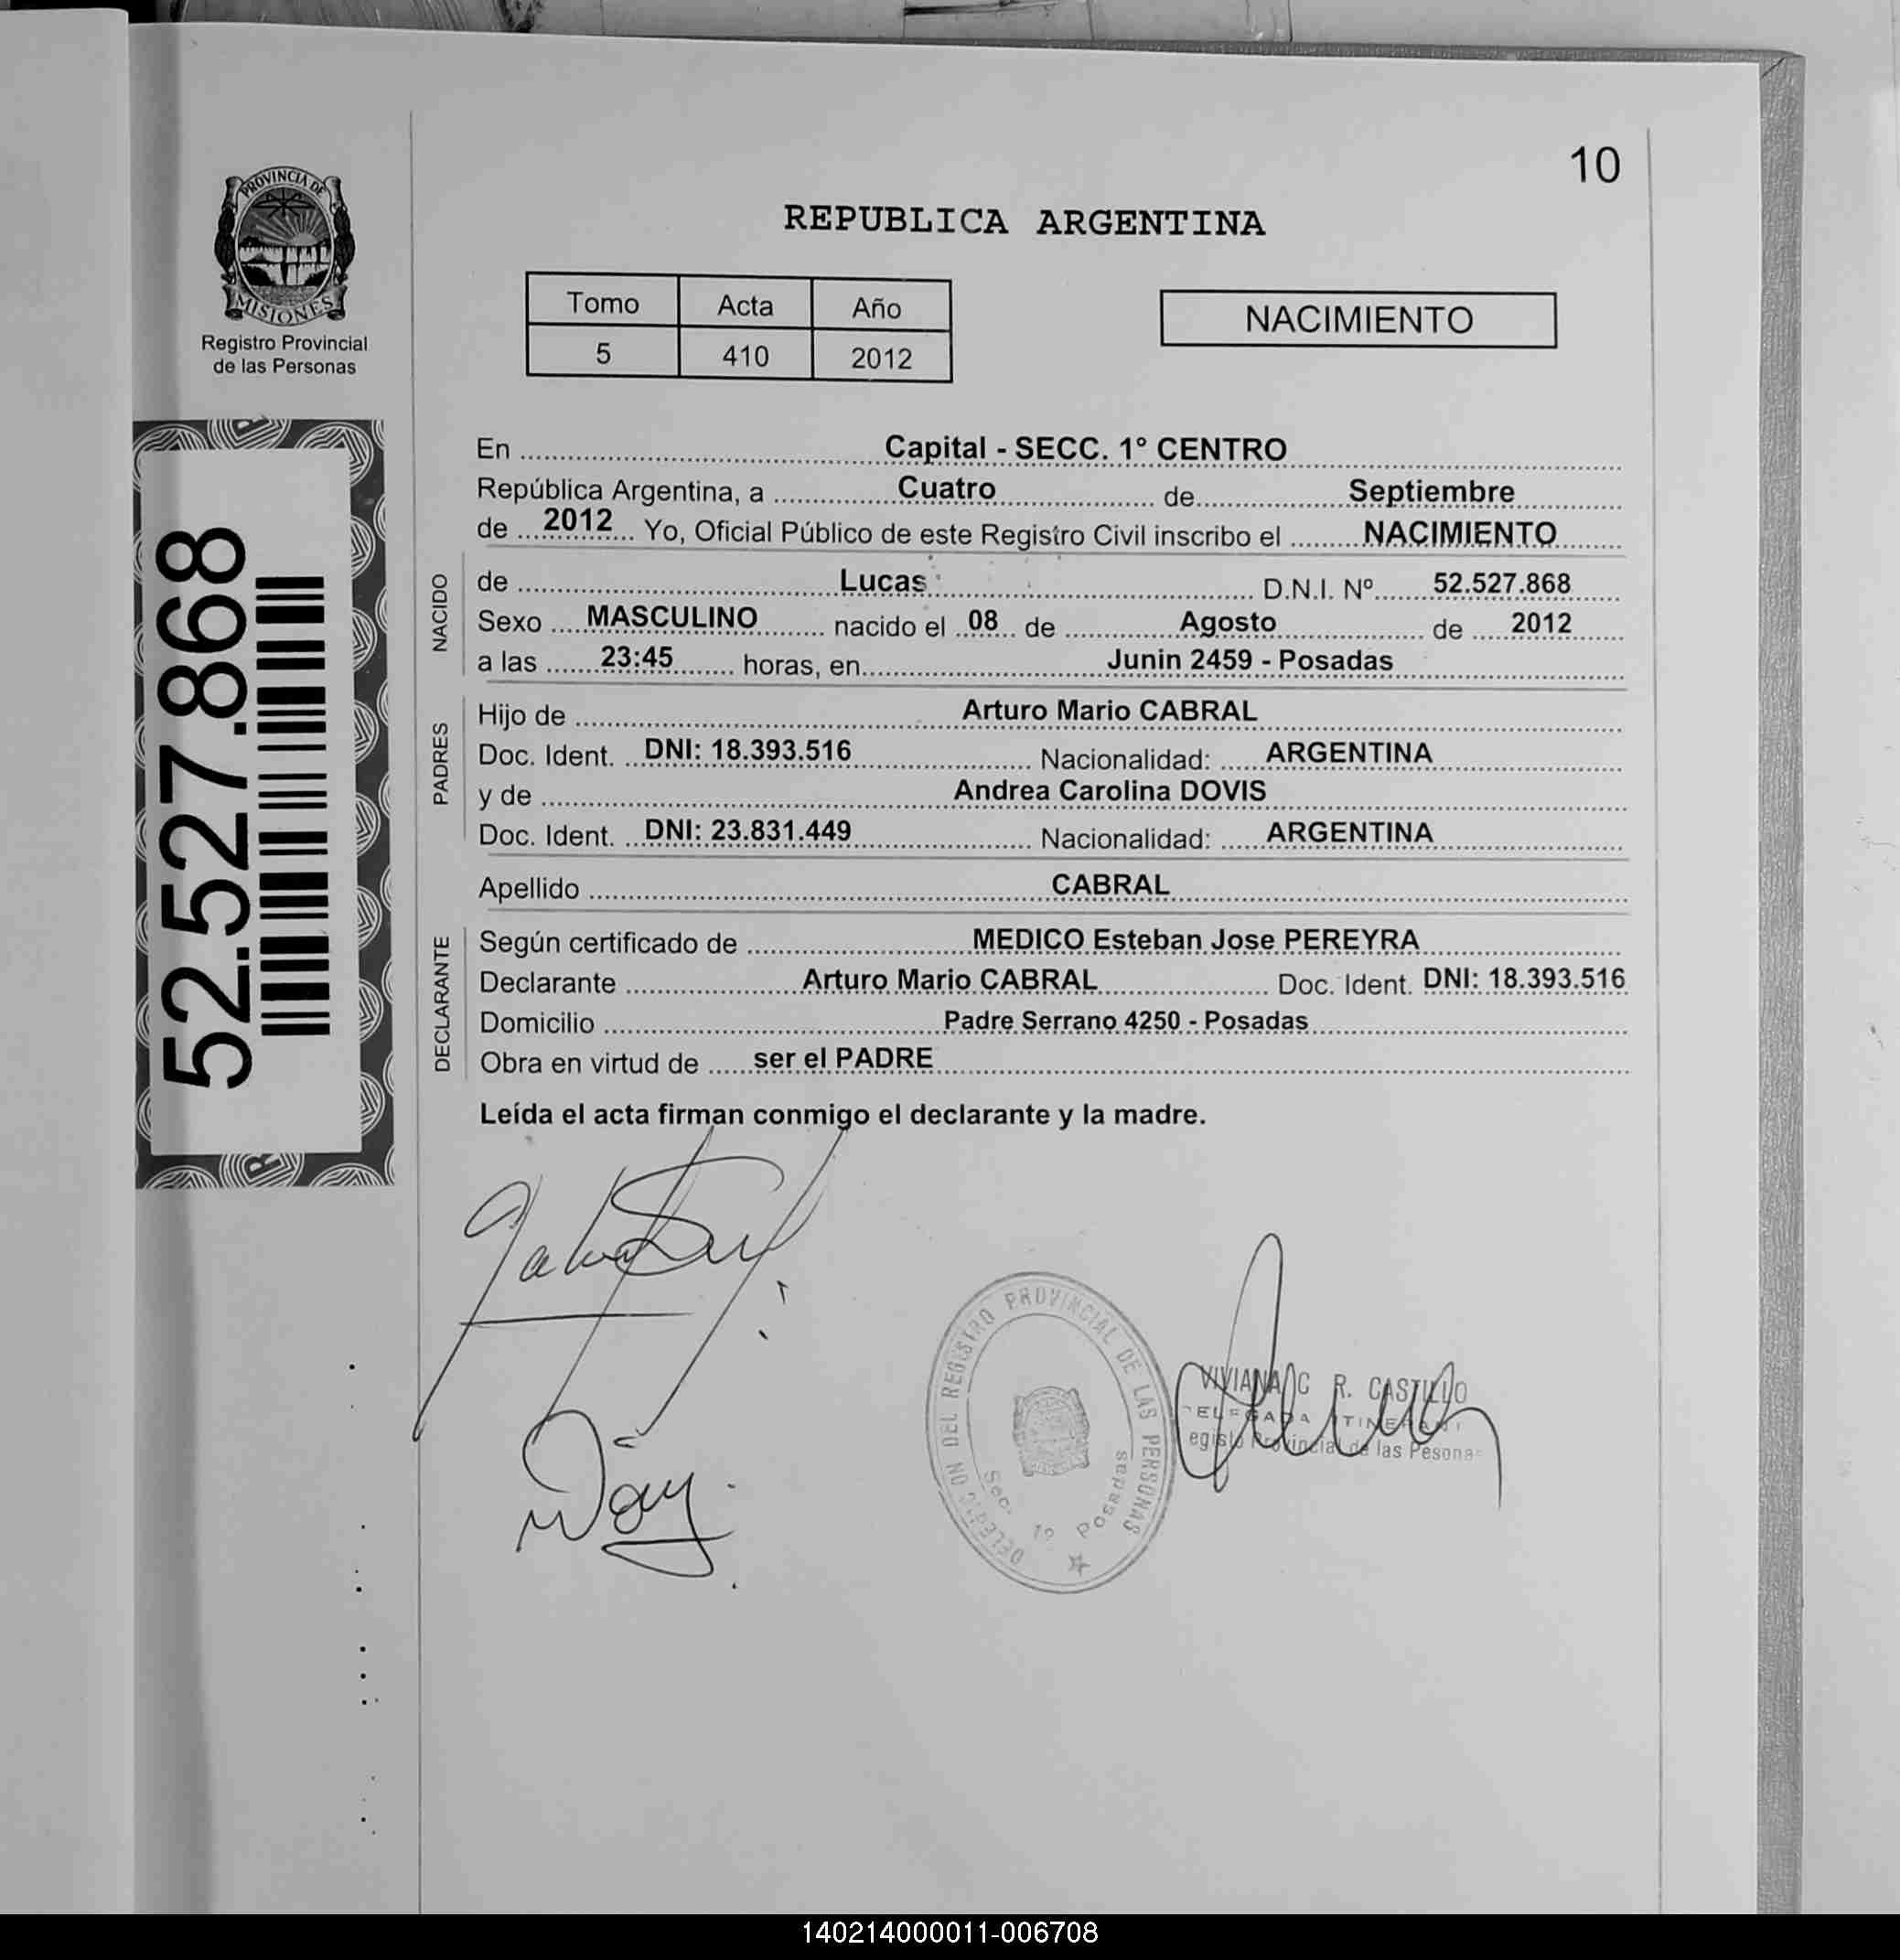 10
PROVINCIA DE
MISIONES
Registro Provincial
de las Personas
REPUBLICA ARGENTINA
Tomo Acta Año
5 410 2012
NACIMIENTO
52.527.868
En Capital - SECC. 1º CENTRO
República Argentina, a Cuatro de Septiembre
de 2012 Yo, Oficial Público de este Registro Civil inscribo el NACIMIENTO
NACIDO
de Lucas D.N.I. Nº 52.527.868
Sexo MASCULINO nacido el 08 de Agosto de 2012
a las 23:45 horas, en Junin 2459 - Posadas
PADRES
Hijo de Arturo Mario CABRAL
Doc. Ident. DNI: 18.393.516 Nacionalidad: ARGENTINA
y de Andrea Carolina DOVIS
Doc. Ident. DNI: 23.831.449 Nacionalidad: ARGENTINA
Apellido CABRAL
DECLARANTE
Según certificado de MEDICO Esteban Jose PEREYRA
Declarante Arturo Mario CABRAL Doc. Ident. DNI: 18.393.516
Domicilio Padre Serrano 4250 - Posadas
Obra en virtud de ser el PADRE
Leída el acta firman conmigo el declarante y la madre.
DEL REGISTRO PROVINCIAL DE LAS PERSONAS
Sec. 1º Posadas
VIVIANA C R. CASTILLO
de las Pesona
140214000011-006708